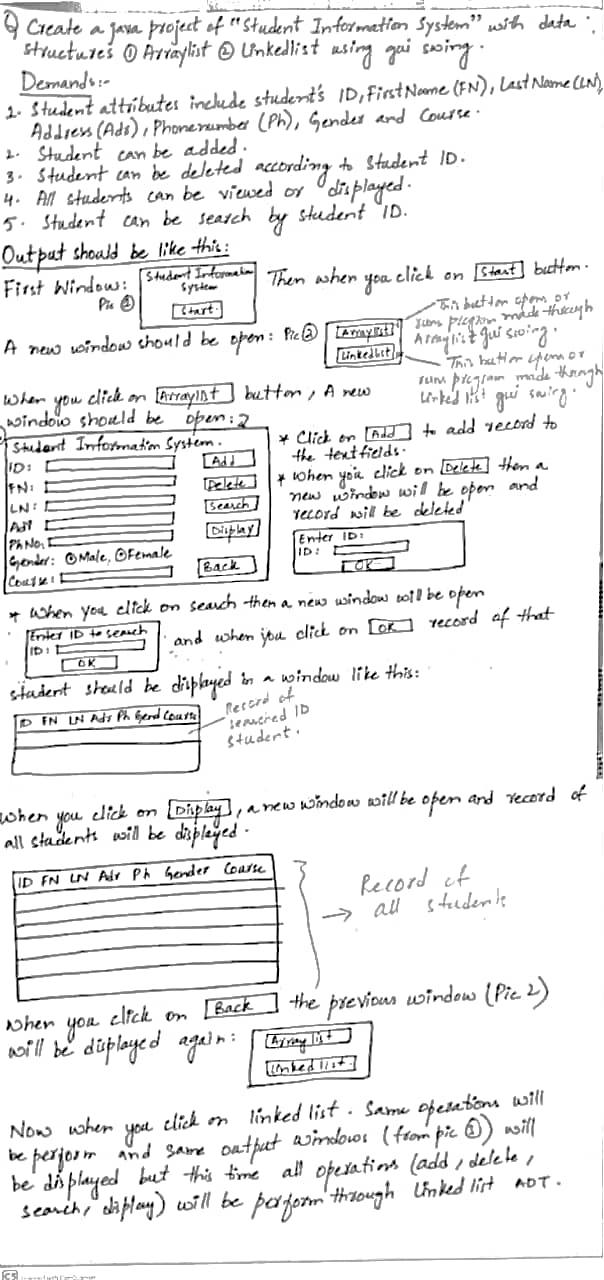 Q Create a java project of "Student Information System" with data
structures ① Arraylist ② Linkedlist using gui swing.
Demands:-
1. Student attributes include student's ID, FirstName (FN), LastName (LN),
Address (Ads), Phonenumber (Ph), Gender and Course.
2. Student can be added.
3. Student can be deleted according to Student ID.
4. All students can be viewed or displayed.
5. Student can be search by student ID.
Output should be like this:
First Window:
Pic ①
Student Information
System
Start
Then when you click on Start button.
A new window should be open: Pic ②
Arraylist
Linkedlist
This button open or
runs program made through
Arraylist gui swing.
This button open or
runs program made through
Linked list gui swing.
When you click on ArrayList button, A new
window should be open:
Student Information System.
ID:
FN:
LN:
Adr
PhNo:
Gender: Male, Female
Course:
Add
Delete
Search
Display
Back
* Click on Add to add record to
the textfields.
* When you click on Delete then a
new window will be open and
record will be deleted
Enter ID:
ID:
OK
* When you click on search then a new window will be open
Enter ID to search
ID:
OK
and when you click on OK record of that
student should be displayed in a window like this:
ID FN LN Adr Ph Gend Course
Record of
searched ID
student.
When you click on Display, a new window will be open and record of
all students will be displayed.
ID FN LN Adr Ph Gender Course
Record of
all students
When you click on Back the previous window (Pic 2)
will be displayed again:
Array list
Linked list.
Now when you click on linked list. Same operations will
be perform and same output windows (from pic ③) will
be displayed but this time all operations (add, delete,
search, display) will be perform through Linked list ADT.
CS